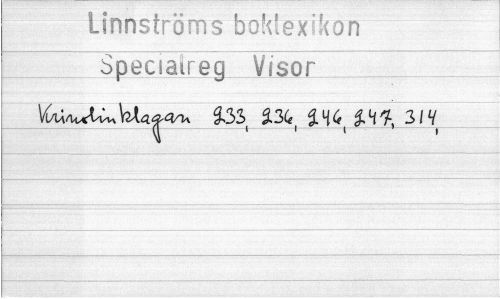 Linnströms boklexikon
Specialreg Visor
Krinolinklagan 233, 236, 246, 247, 314,